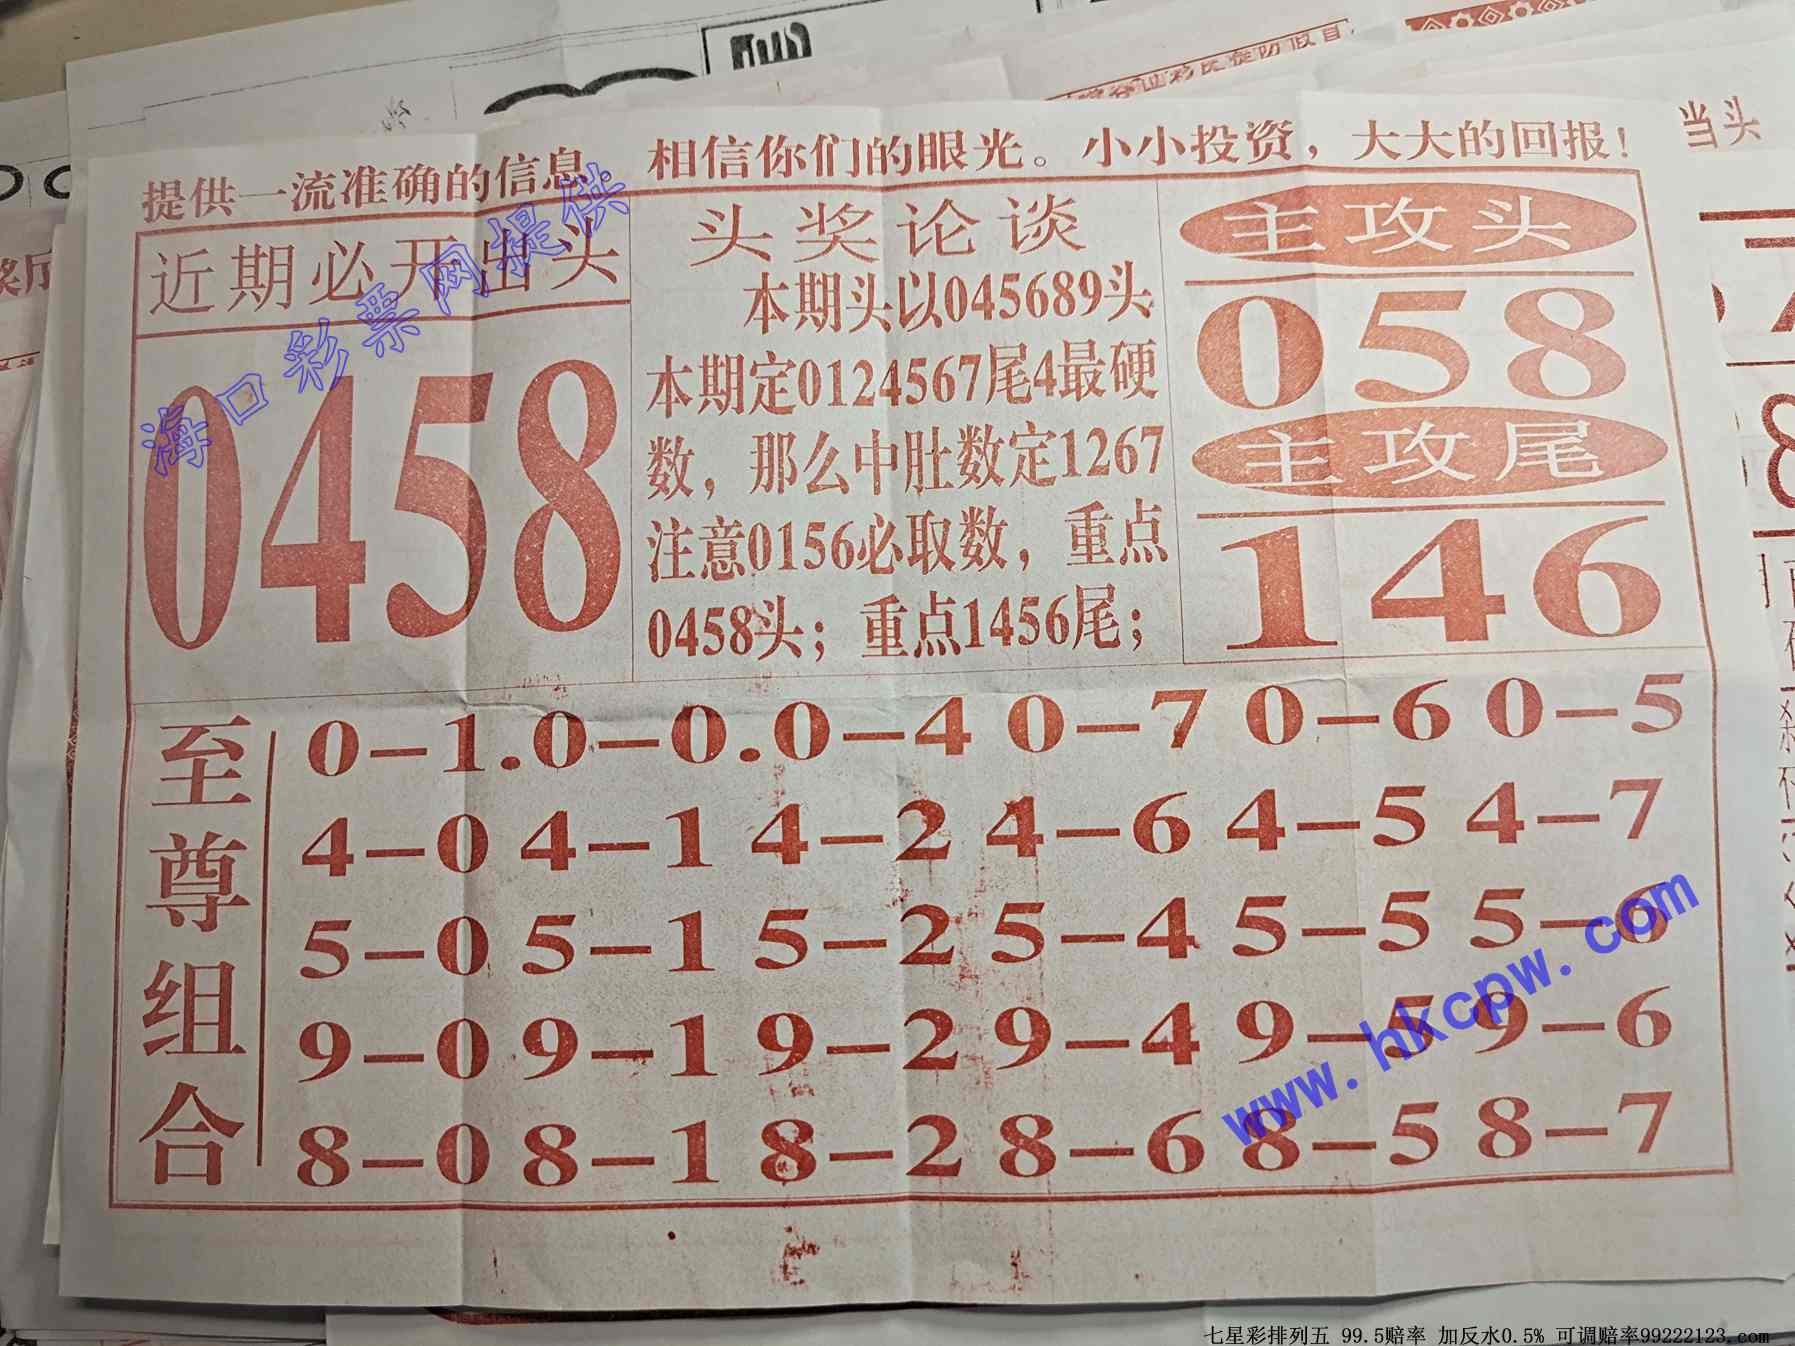 当头
提供一流准确的信息 相信你们的眼光。小小投资，大大的回报！
近期必开出头
0458
头奖论谈
本期头以045689头
本期定0124567尾4最硬
数，那么中肚数定1267
注意0156必取数，重点
0458头；重点1456尾；
主攻头
058
主攻尾
146
至尊组合
0—1.0—0.0—4 0—7 0—6 0—5
4—0 4—1 4—2 4—6 4—5 4—7
5—0 5—1 5—2 5—4 5—5 5—6
9—0 9—1 9—2 9—4 9—5 9—6
8—0 8—1 8—2 8—6 8—5 8—7
海口彩票网提供
www.hkcpw.com
七星彩排列五 99.5赔率 加反水0.5% 可调赔率99222123.com